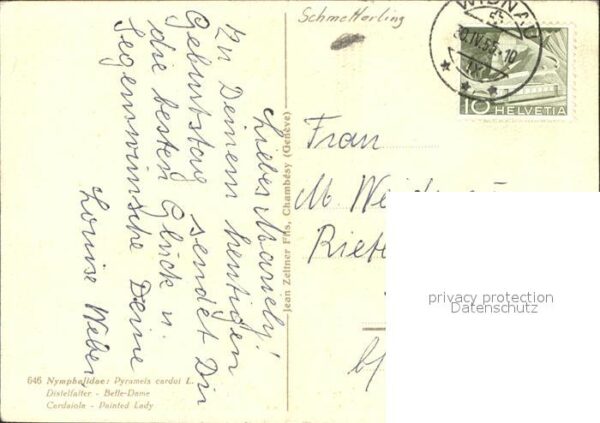 Schmetterling
WIDNAU
20.IV.55-10
10 HELVETIA
Liebes
Zu Deinem heutigen
Geburtstag sendet Dir
die besten Glück u.
Segenswünsche Deine
Louise Weber
Jean Zeltner Fils, Chambésy (Genève)
Frau
M.
privacy protection
Datenschutz
646 Nymphalidae: Pyrameis cardui L.
Distelfalter - Belle-Dame
Cardaiola - Painted Lady